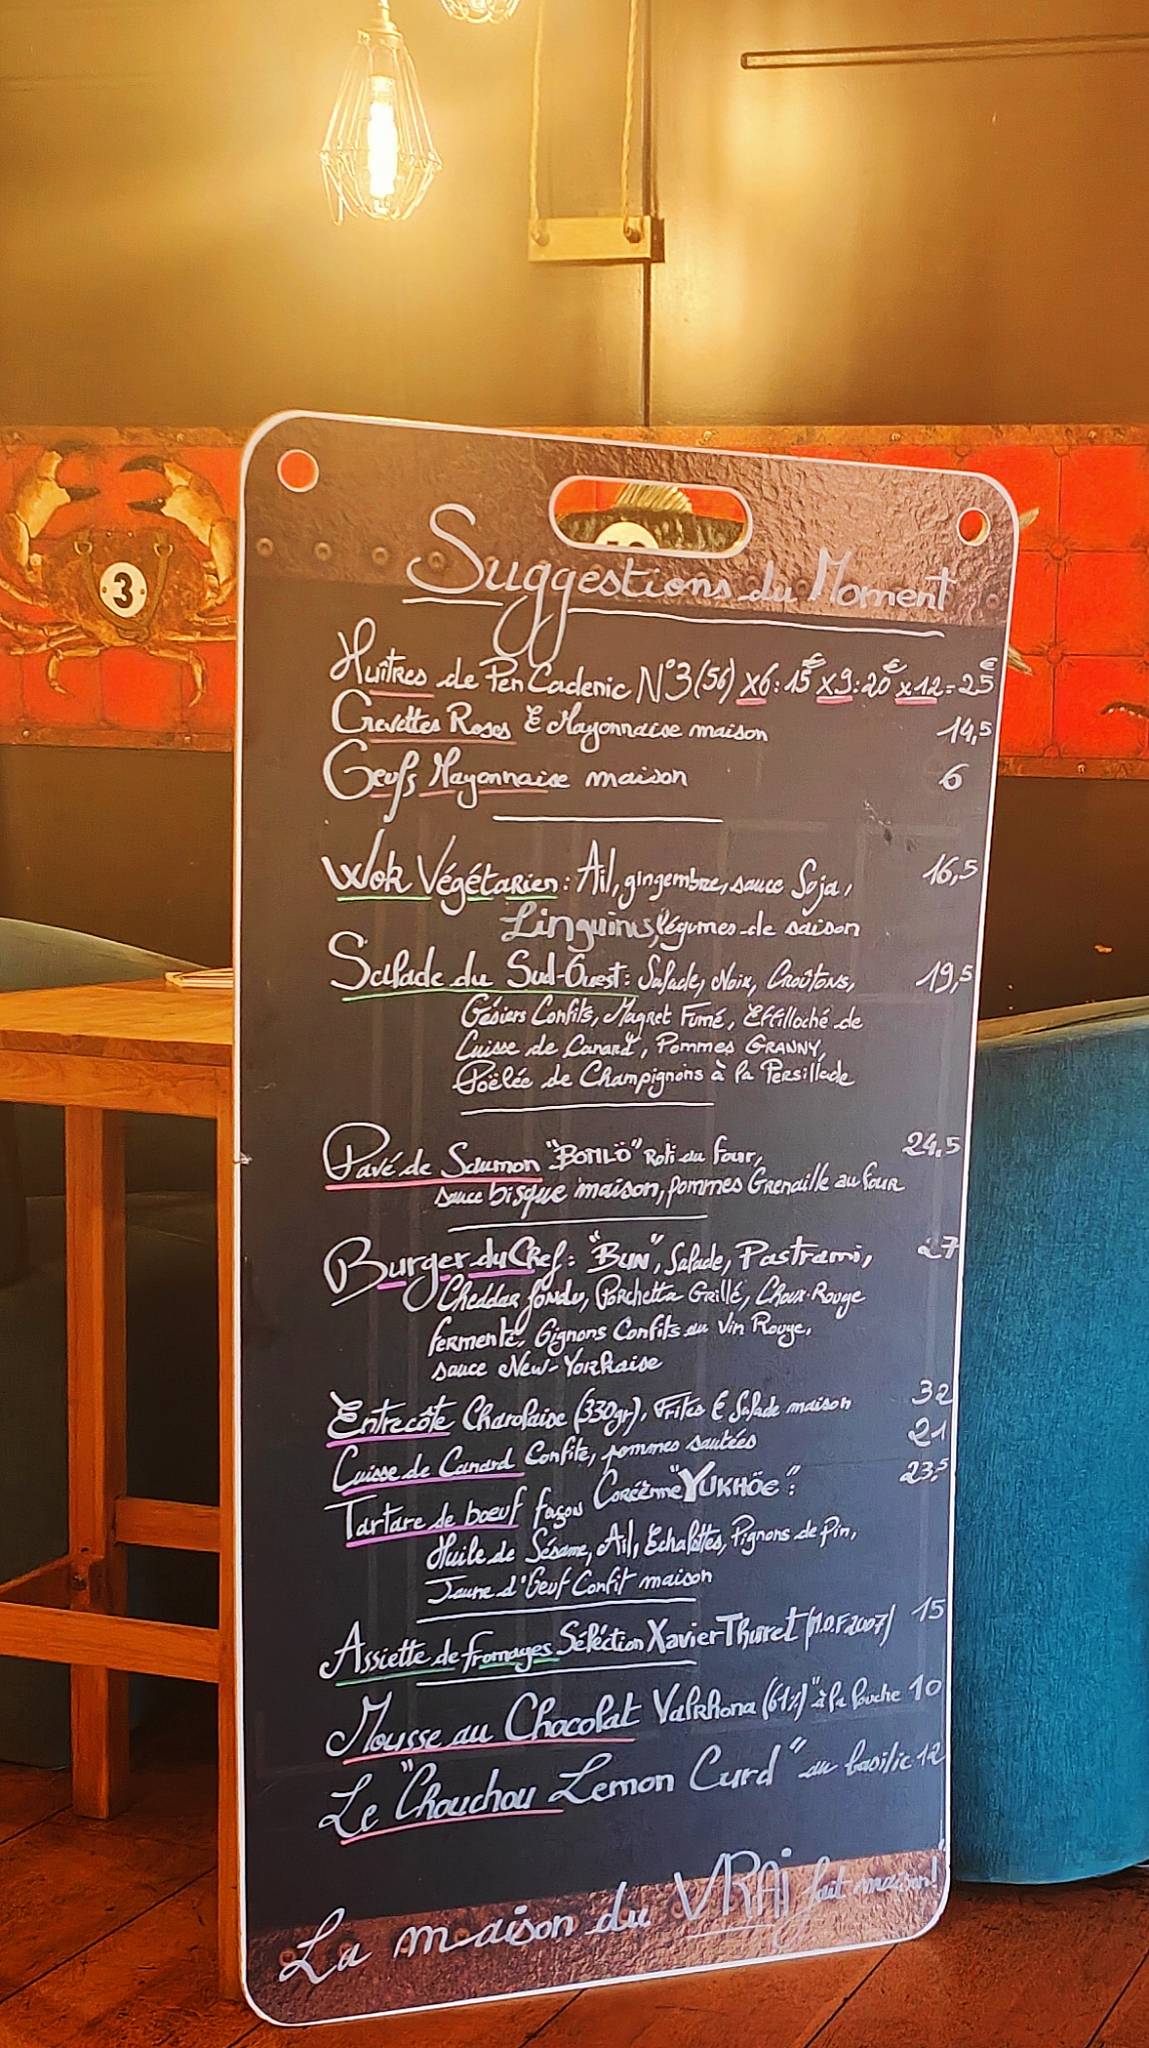 Suggestions du Moment
Huîtres de Pen Cadenic N°3 (56) x6: 15€ x9: 20€ x12= 25€
Crevettes Roses & Mayonnaise maison 14,5
Oeufs Mayonnaise maison 6
Wok Végétarien: Ail, gingembre, sauce Soja, 16,5
Linguines, légumes de saison
Salade du Sud-Ouest: Salade, Noix, Croûtons, 19,5
Gésiers Confits, Magret Fumé, Effilloché de
Cuisse de Canard, Pommes GRANNY,
Poëlée de Champignons à la Persillade
Pavé de Saumon "BOMLÖ" Roti au four, 24,5
sauce bisque maison, pommes Grenaille au four
Burger du Chef: "BUN", Salade, Pastrami, 27
Cheddar fondu, Porchetta Grillé, Choux-Rouge
fermenté, Oignons Confits au Vin Rouge,
sauce New-Yorkaise
Entrecôte Charolaise (330gr), Frites & Salade maison 32
Cuisse de Canard Confite, pommes sautées 21
Tartare de bœuf façon Coréenne "YUKHÖE": 23,5
Huile de Sésame, Ail, Echalottes, Pignons de Pin,
Jaune d'Oeuf Confit maison
Assiette de fromages Séléction Xavier Thuret (M.O.F 2007) 15
Mousse au Chocolat Valrhona (61%) "à la louche 10
Le "Chouchou Lemon Curd" au basilic 12
La maison du VRAi fait maison!
3